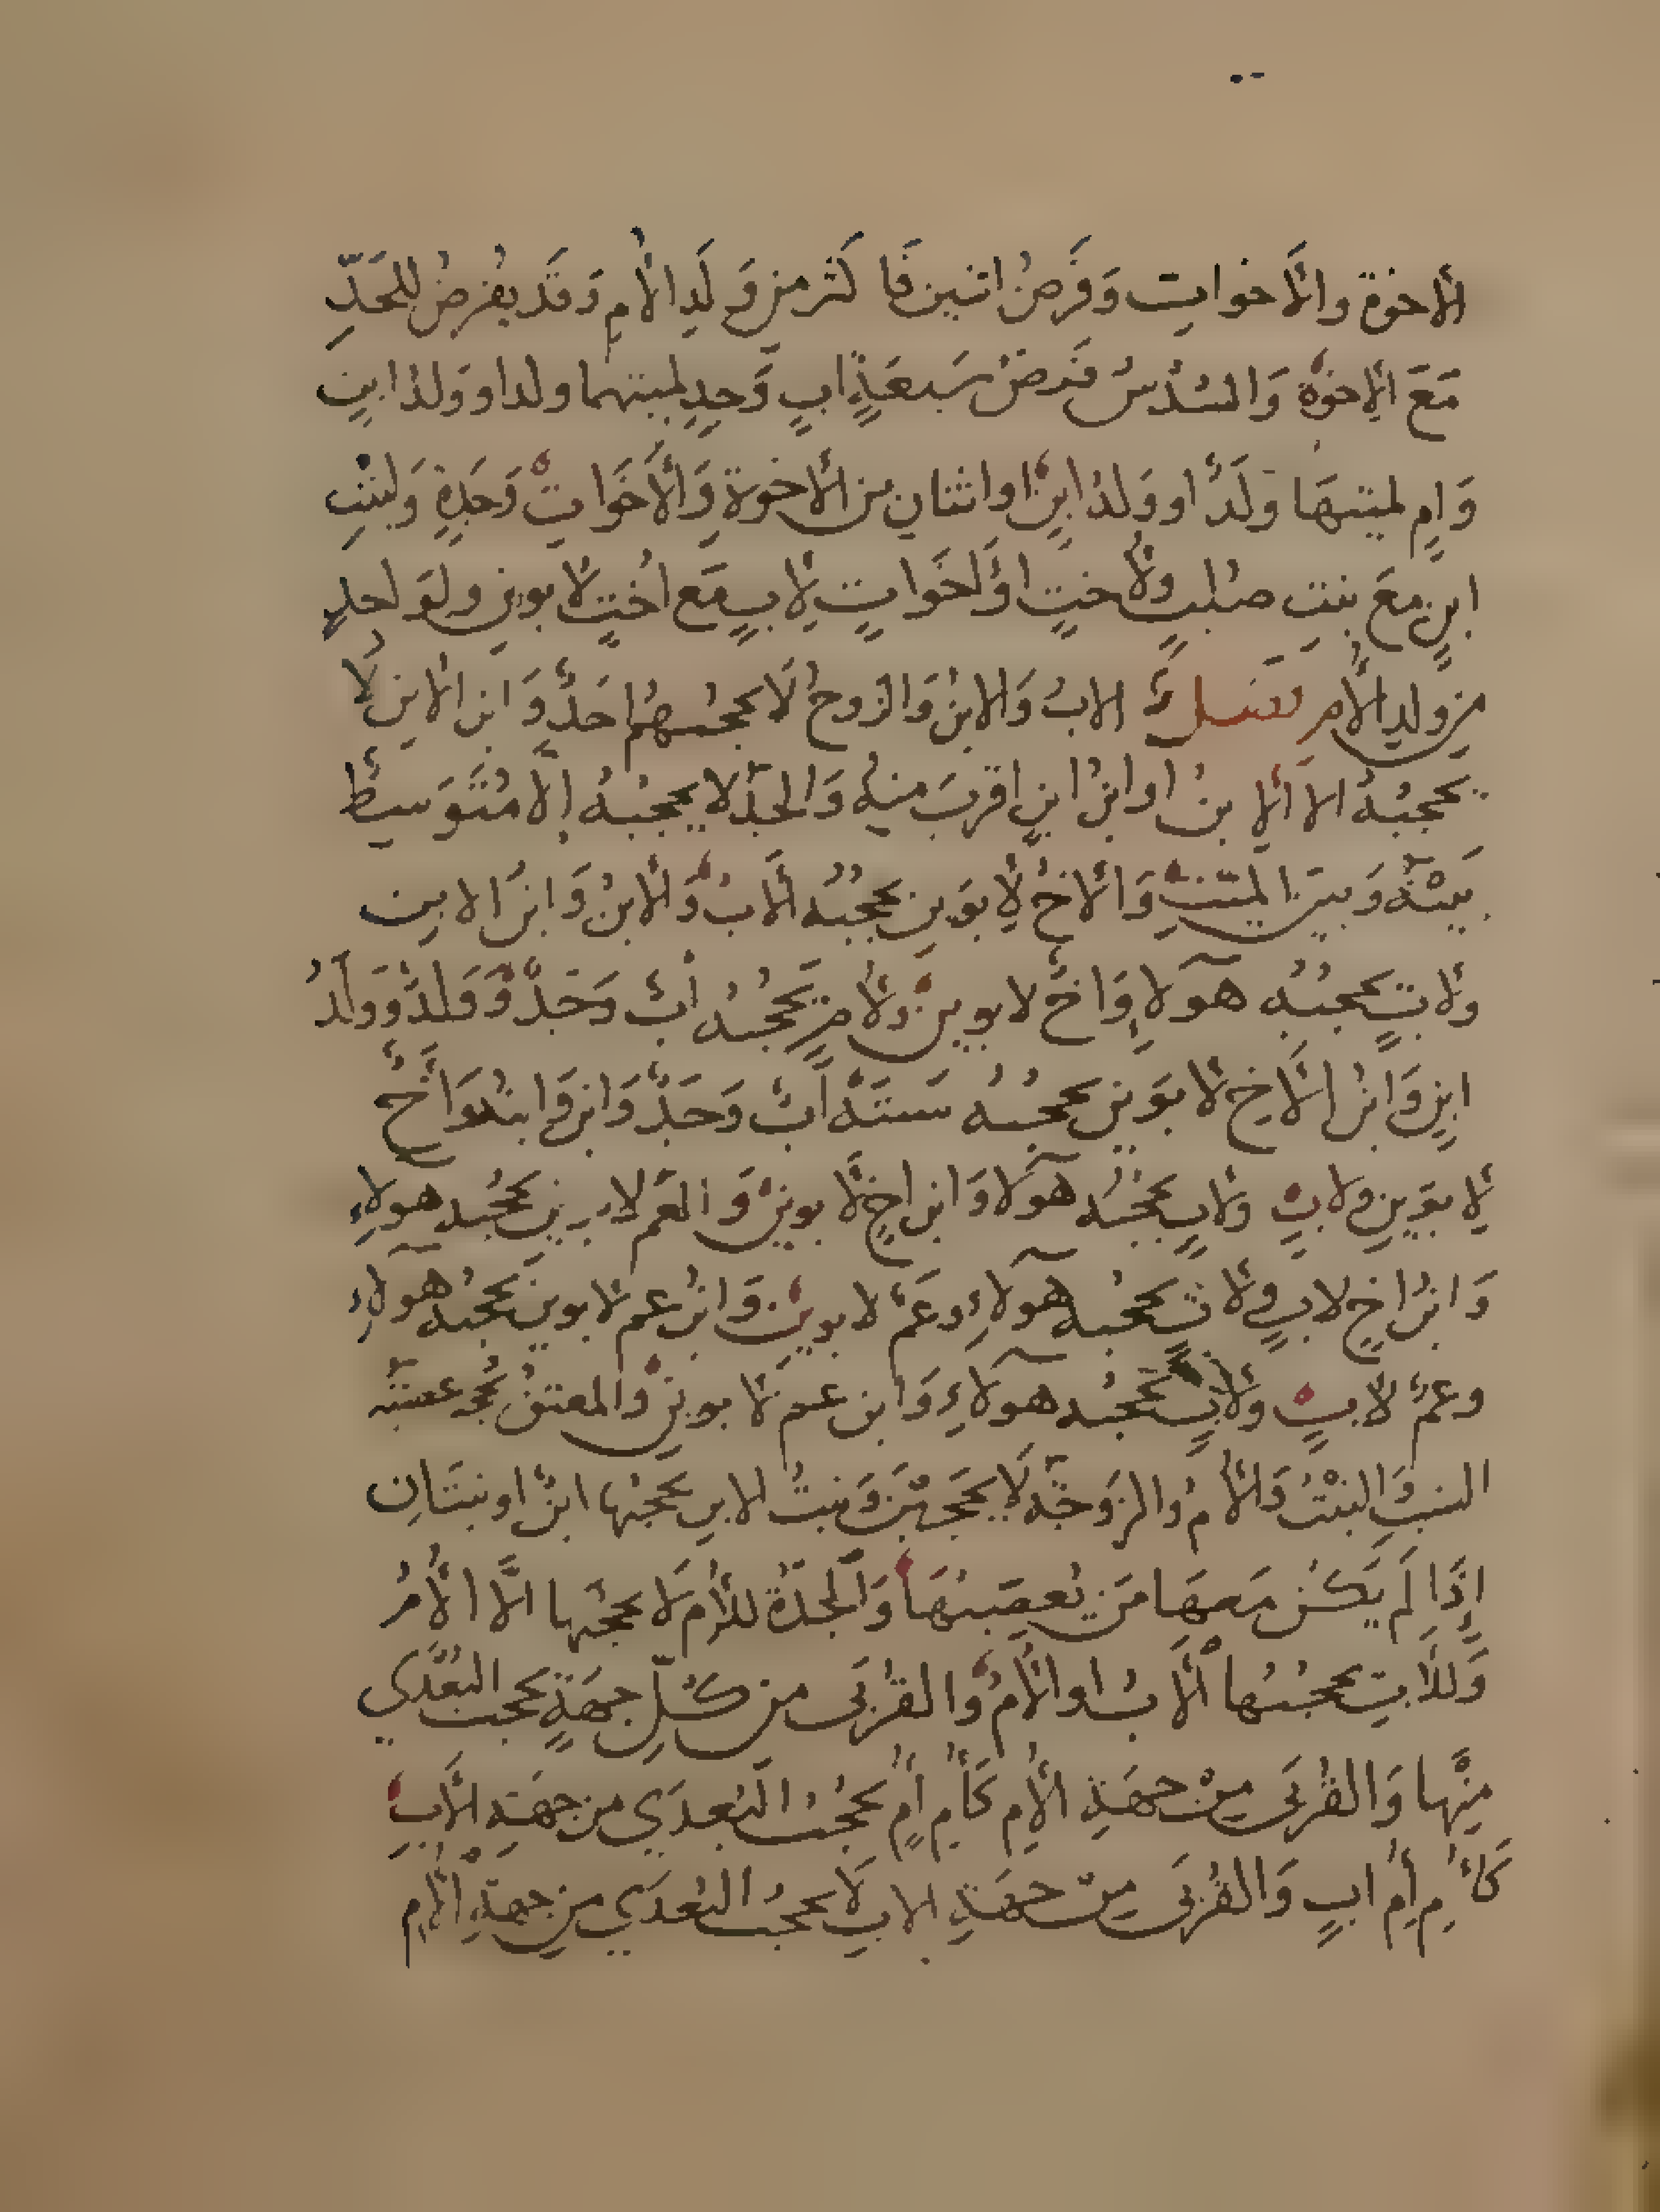 الاخوة والاخوات وَفَرضُ اثنين فاكثر من وَلَدِ الاُم وَقَد يُفرضُ للجَدِّ
مَعَ الاِخوة وَالسُدُسُ فَرضُ سَبعَةٍ ابٍ وَجدٍ لميتهما ولد او وَلدُ ابنٍ
وَامٍ لميتهَا وَلَدٌ او وَلدُ ابنٍ او اثنان من الاخوة وَالاَخَوات وَجَدةٍ وَلبنتِ
ابنٍ معَ بنتِ صُلبٍ ولاُختٍ اوَ اخَواتٍ لاِبٍ مَع اُختٍ لابوين ولوَاحدٍ
من ولدِ الاُم فصل الابُ وَالابنُ وَالزوجُ لَا يحجبُهُم احَدٌ وَابن الابن لا
يحجبُهُ الا الابنُ او ابنُ ابنٍ اقربَ منهُ وَالجدّ لا يحجبُهُ الَّا مُتَوَسِطٌ
بَينَهُ وَبينَ الميّت وَالاخُ لِابوَين يحجبُهُ الاَبُ وَالابنُ وَابنُ الابن
ولابٍ يحجبُهُ هآولاءِ وَاخٌ لابوين ولاُمٍ يَحجُبُهُ ابٌ وَجَدٌّ وَوَلدٌ وَوَلَدُ
ابنٍ وَابنُ الاَخِ لابوَين يحجبُهُ ستَةٌ اَبٌ وَجَدٌّ وَابن وَابنهُ وَاخٌ
لابوَينِ ولابٍ ولابٍ يحجبُهُ هآولا وَابن اخٍ لَابوين وَالعَم لابوين يحجُبه هولاءِ
وَابنُ اخٍ لابٍ ولابٍ يحجبُه هآولاءِ وعَمٌ لابوين وَابنُ عم لابوين يحجبه هآولاءِ
وعمٌ لابٍ ولابٍ يحجبُه هآولاءِ وَابن عم لابوين وَالمعتقُ يحجبه عصبَة
النسب وَالبنْتُ وَالاُمُ والزوجَةُ لَا يُحجَبنَ وَبنتُ الابن يحجبُها ابنٌ او بنتَانِ
اِذَا لَم يَكن مَعهَا مَن يُعصِبُهَا وَالجدَةُ للاُم لَا يحجبُها الَّا الاُمُ
وَللاَبِ يحجبُهَا الاَبُ او الاُمُ وَالقربَى من كُلِّ جهَةٍ يحجبُ البُعدَي
مِنّها وَالقُربَى مِنْ جهَةِ الاُمِ كَاُمِ اُمٍ يَحجُبُ البُعدَي من جهَةِ الاَبِ
كاُمِ اُمِ ابٍ وَالقُربَى مِنْ جهَةِ الابِ لَا يحجبُ البُعدَي من جهَةِ الاُم